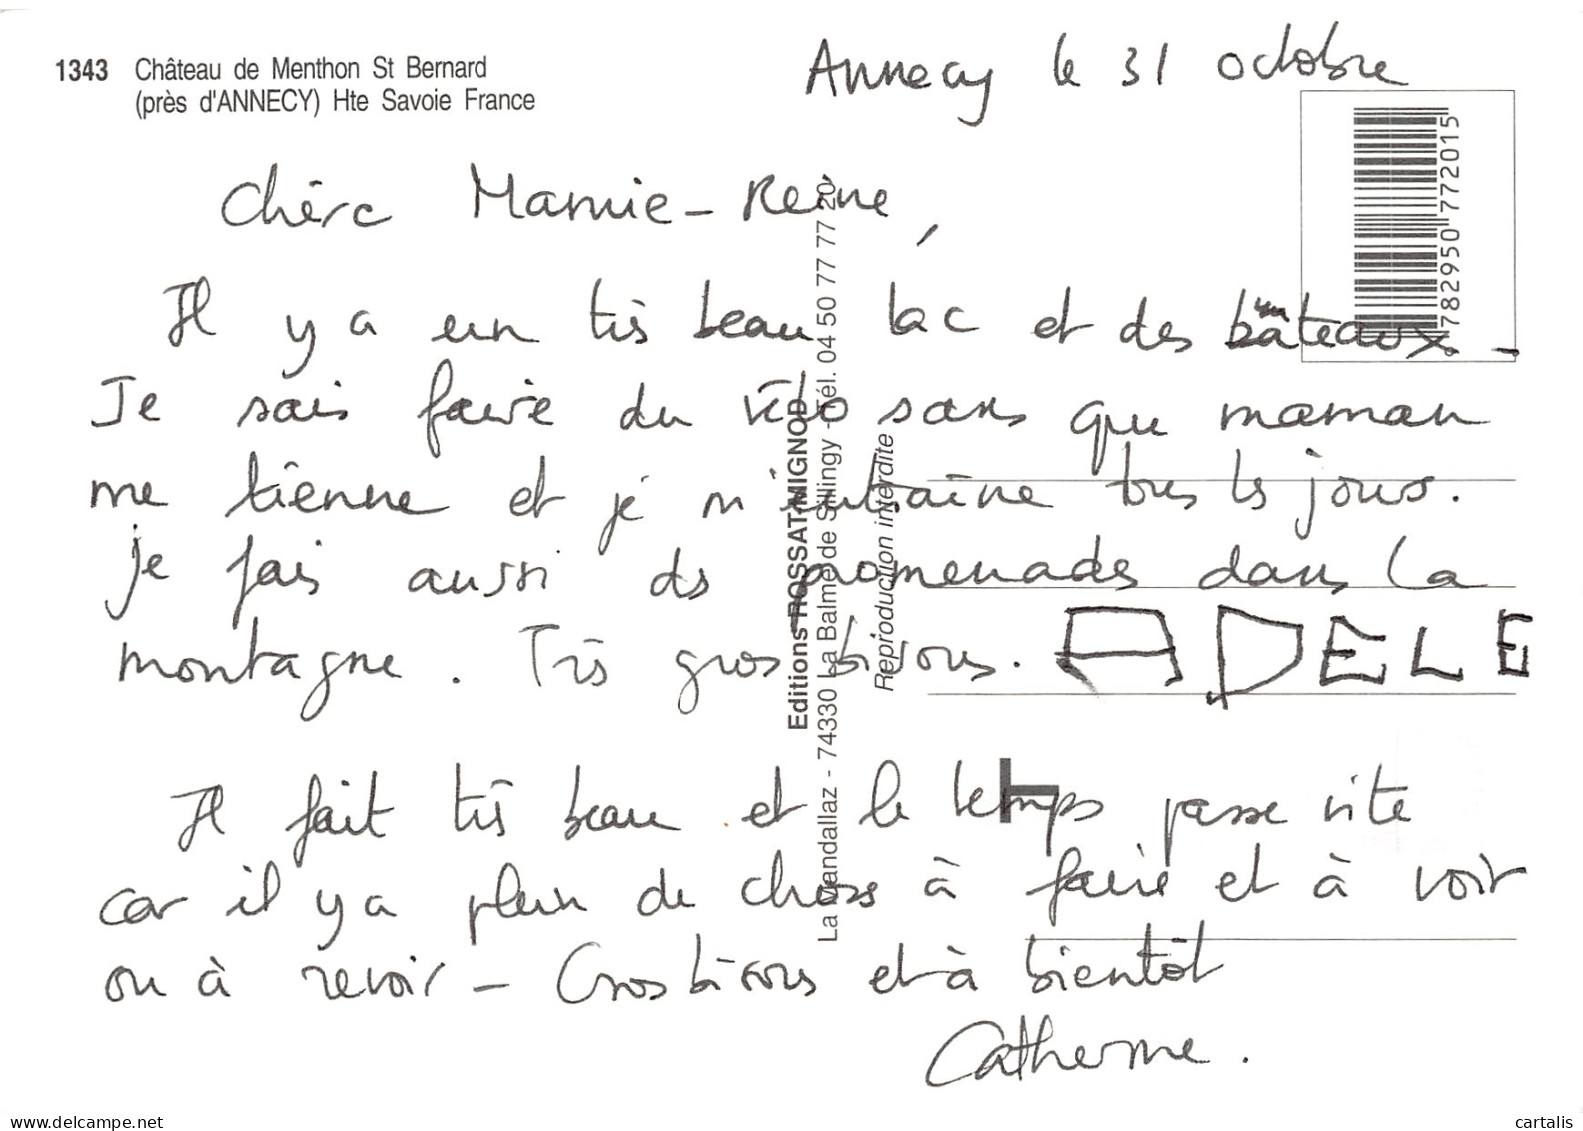 1343 Château de Menthon St Bernard
(près d'ANNECY) Hte Savoie France
Annecy le 31 octobre
782950 772015
Chère Mamie-Reine,
Il y a un très beau lac et des bateaux. -
Je sais faire du vélo sans que maman
me tienne et je m'entraîne tous les jours.
Je fais aussi des promenades dans la
montagne. Très gros bisous. ADELE
Il fait très beau et le temps passe vite
car il y a plein de choses à faire et à voir
ou à revoir - Gros bisous et à bientôt
Catherine.
Editions ROSSAT-MIGNOD
La Mandallaz - 74330 La Balme de Sillingy - Tél. 04 50 77 77 20
Reproduction interdite
www.delcampe.net
cartalis